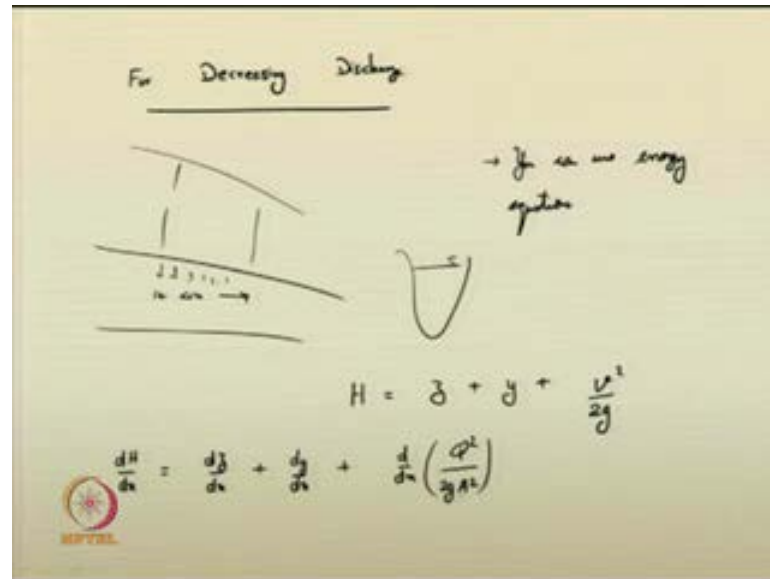 For Decreasing Discharge
→ You can use energy
equation
H = z + y + v²/2g
dH/dx = dz/dx + dy/dx + d/dx (Q²/2gA²)
NPTEL